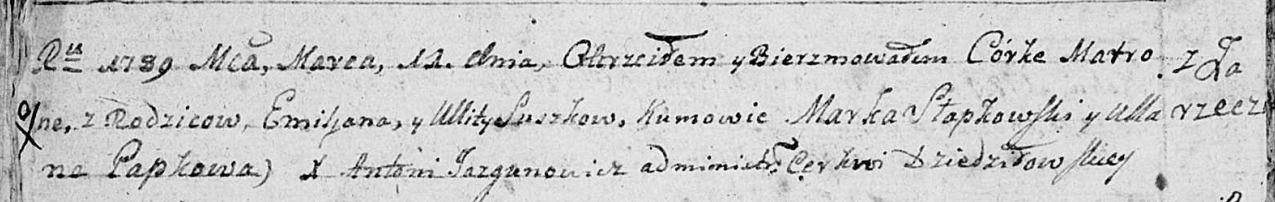 Rᵘ 1789 Mca, Marca, 12. dnia, Ochrzciłem y Bierzmowałem Córke Matro
ne, z Rodzicow, Emiljana, y Ullity Suszkow, Kumowie Marka Stapkowski y Ulla
na Papkowa) X Antoni Jazgunowicz administr: Cerkwi Dziedziłowskiey
z Za
rzecz